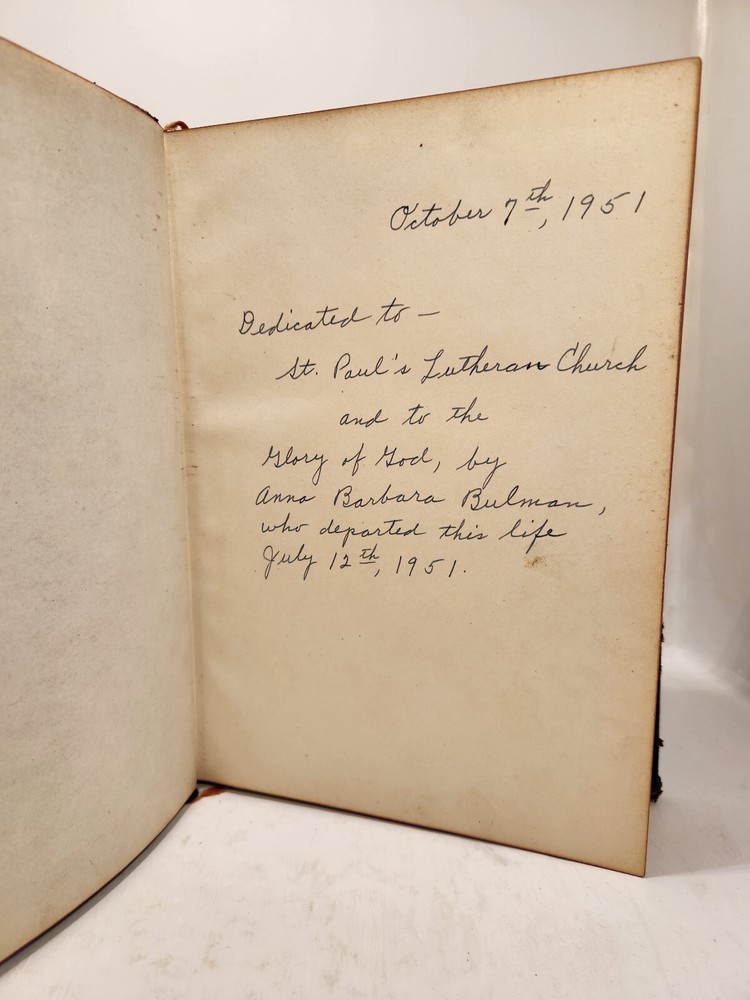 October 7th, 1951
Dedicated to —
St. Paul's Lutheran Church
and to the
Glory of God, by
Anna Barbara Bulman,
who departed this life
July 12th, 1951.